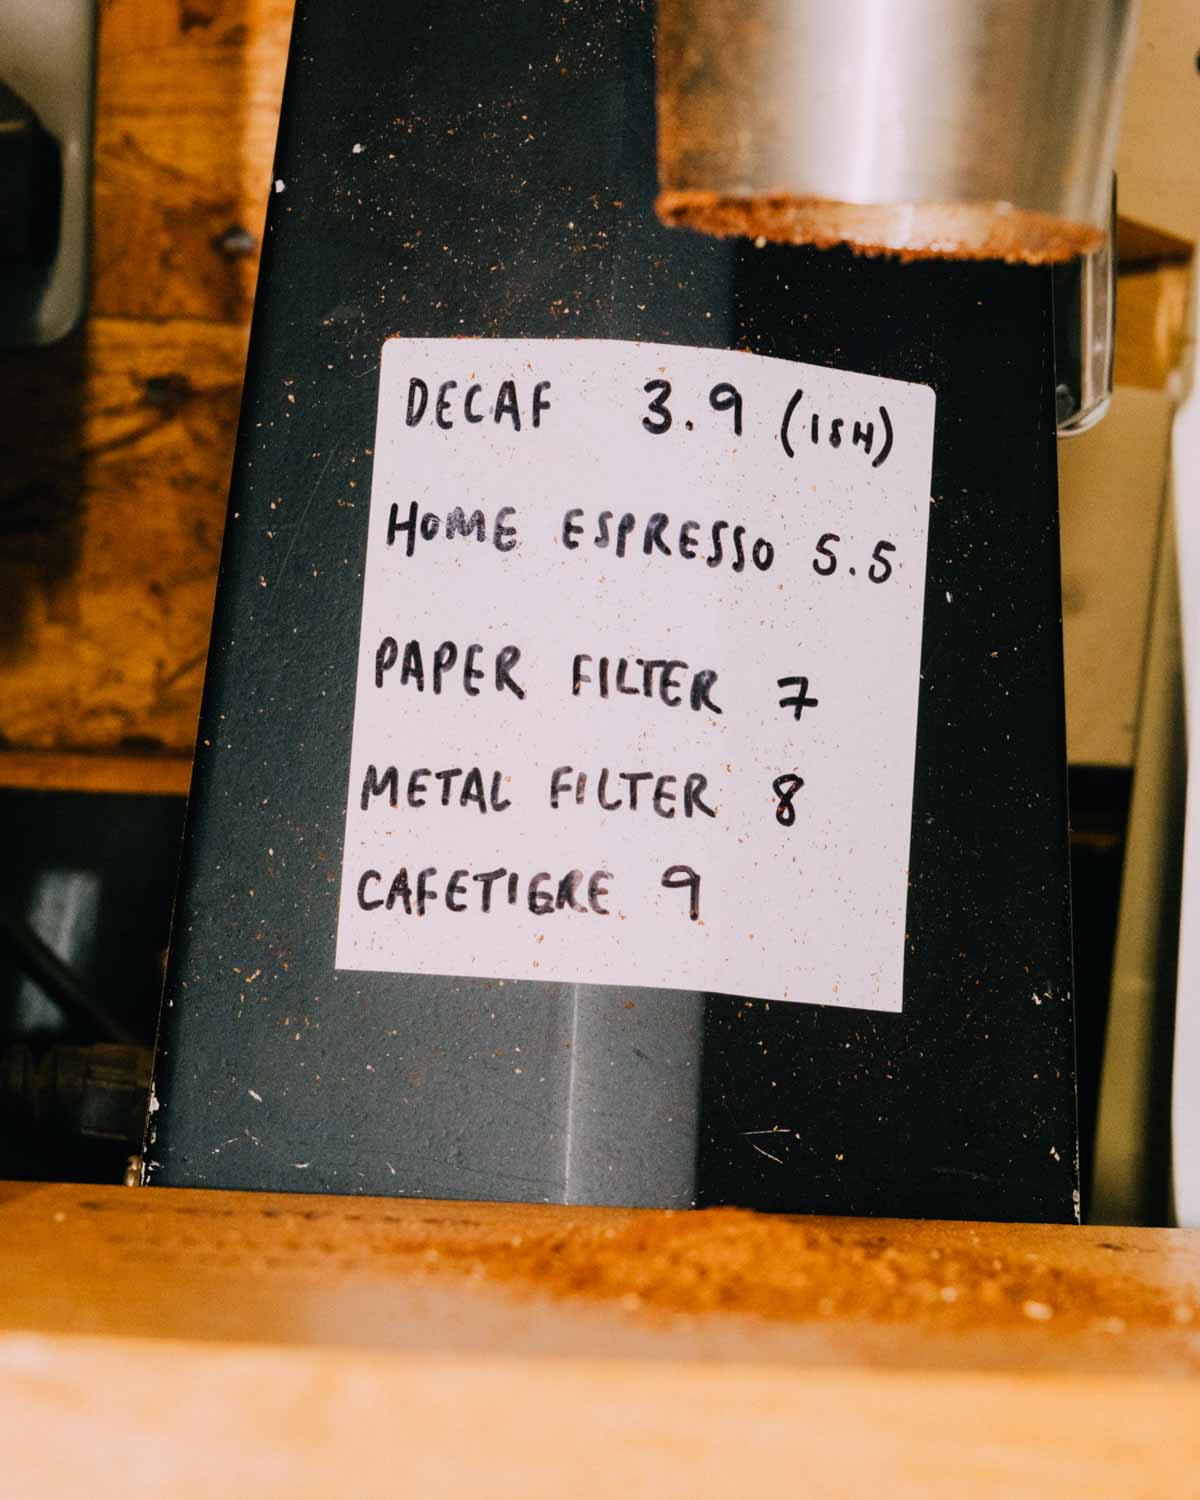 DECAF 3.9 (ISH)
HOME ESPRESSO 5.5
PAPER FILTER 7
METAL FILTER 8
CAFETIERE 9